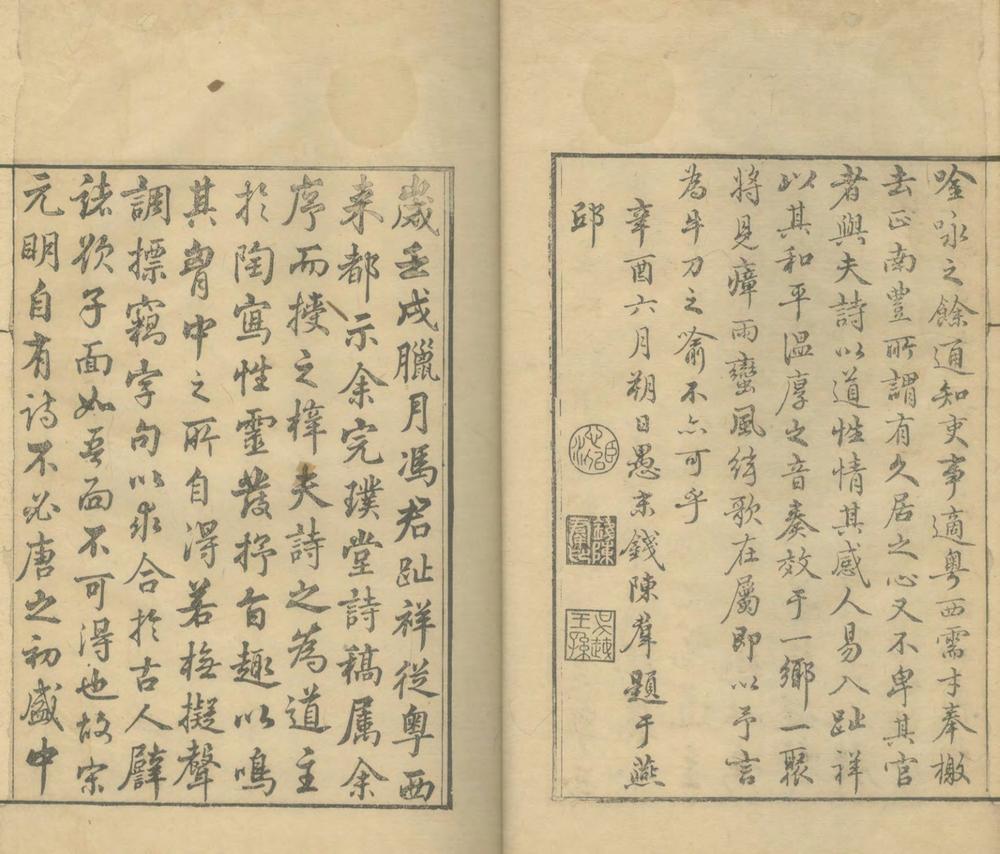 唫咏之餘通知吏事適粤西需才奉檄
去正南豐所謂有久居之心又不卑其官
者與夫詩以道性情其感人易入趾祥
以其和平温厚之音奏效于一鄉一聚
將見瘴雨蠻風絃歌在屬即以予言
為牛刀之喻不亦可乎
辛酉六月朔日愚末錢陳羣題于燕
邱
錢陳羣印
吴越王孫
歲壬戌臘月馮君趾祥從粤西
来都示余完璞堂詩稿属余
序而授之梓夫詩之為道主
於陶寫性靈發抒旨趣以鳴
其胷中之所自得若橅擬聲
調摽竊字句以求合於古人譬
諸欲子面如吾面不可得也故宋
元明自有詩不必唐之初盛中